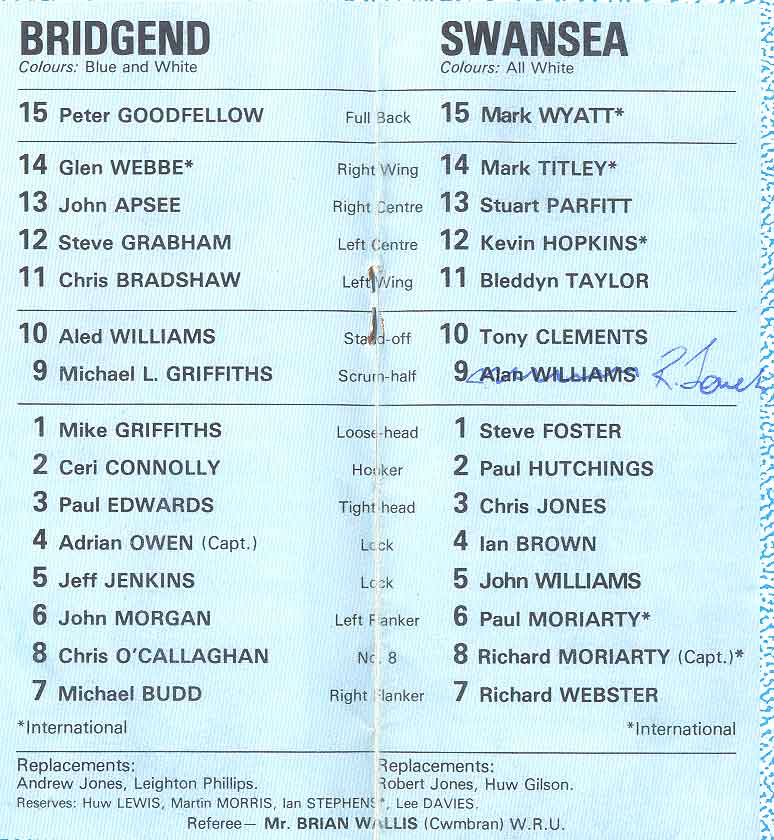 BRIDGEND SWANSEA
Colours: Blue and White Colours: All White
15 Peter GOODFELLOW Full Back 15 Mark WYATT*
14 Glen WEBBE* Right Wing 14 Mark TITLEY*
13 John APSEE Right Centre 13 Stuart PARFITT
12 Steve GRABHAM Left Centre 12 Kevin HOPKINS*
11 Chris BRADSHAW Left Wing 11 Bleddyn TAYLOR
10 Aled WILLIAMS Stand-off 10 Tony CLEMENTS
9 Michael L. GRIFFITHS Scrum-half 9 Alan WILLIAMS R. Jones
1 Mike GRIFFITHS Loose-head 1 Steve FOSTER
2 Ceri CONNOLLY Hooker 2 Paul HUTCHINGS
3 Paul EDWARDS Tight-head 3 Chris JONES
4 Adrian OWEN (Capt.) Lock 4 Ian BROWN
5 Jeff JENKINS Lock 5 John WILLIAMS
6 John MORGAN Left Flanker 6 Paul MORIARTY*
8 Chris O'CALLAGHAN No. 8 8 Richard MORIARTY (Capt.)*
7 Michael BUDD Right Flanker 7 Richard WEBSTER
*International *International
Replacements: Replacements:
Andrew Jones, Leighton Phillips. Robert Jones, Huw Gilson.
Reserves: Huw LEWIS, Martin MORRIS, Ian STEPHENS*, Lee DAVIES.
Referee— Mr. BRIAN WALLIS (Cwmbran) W.R.U.